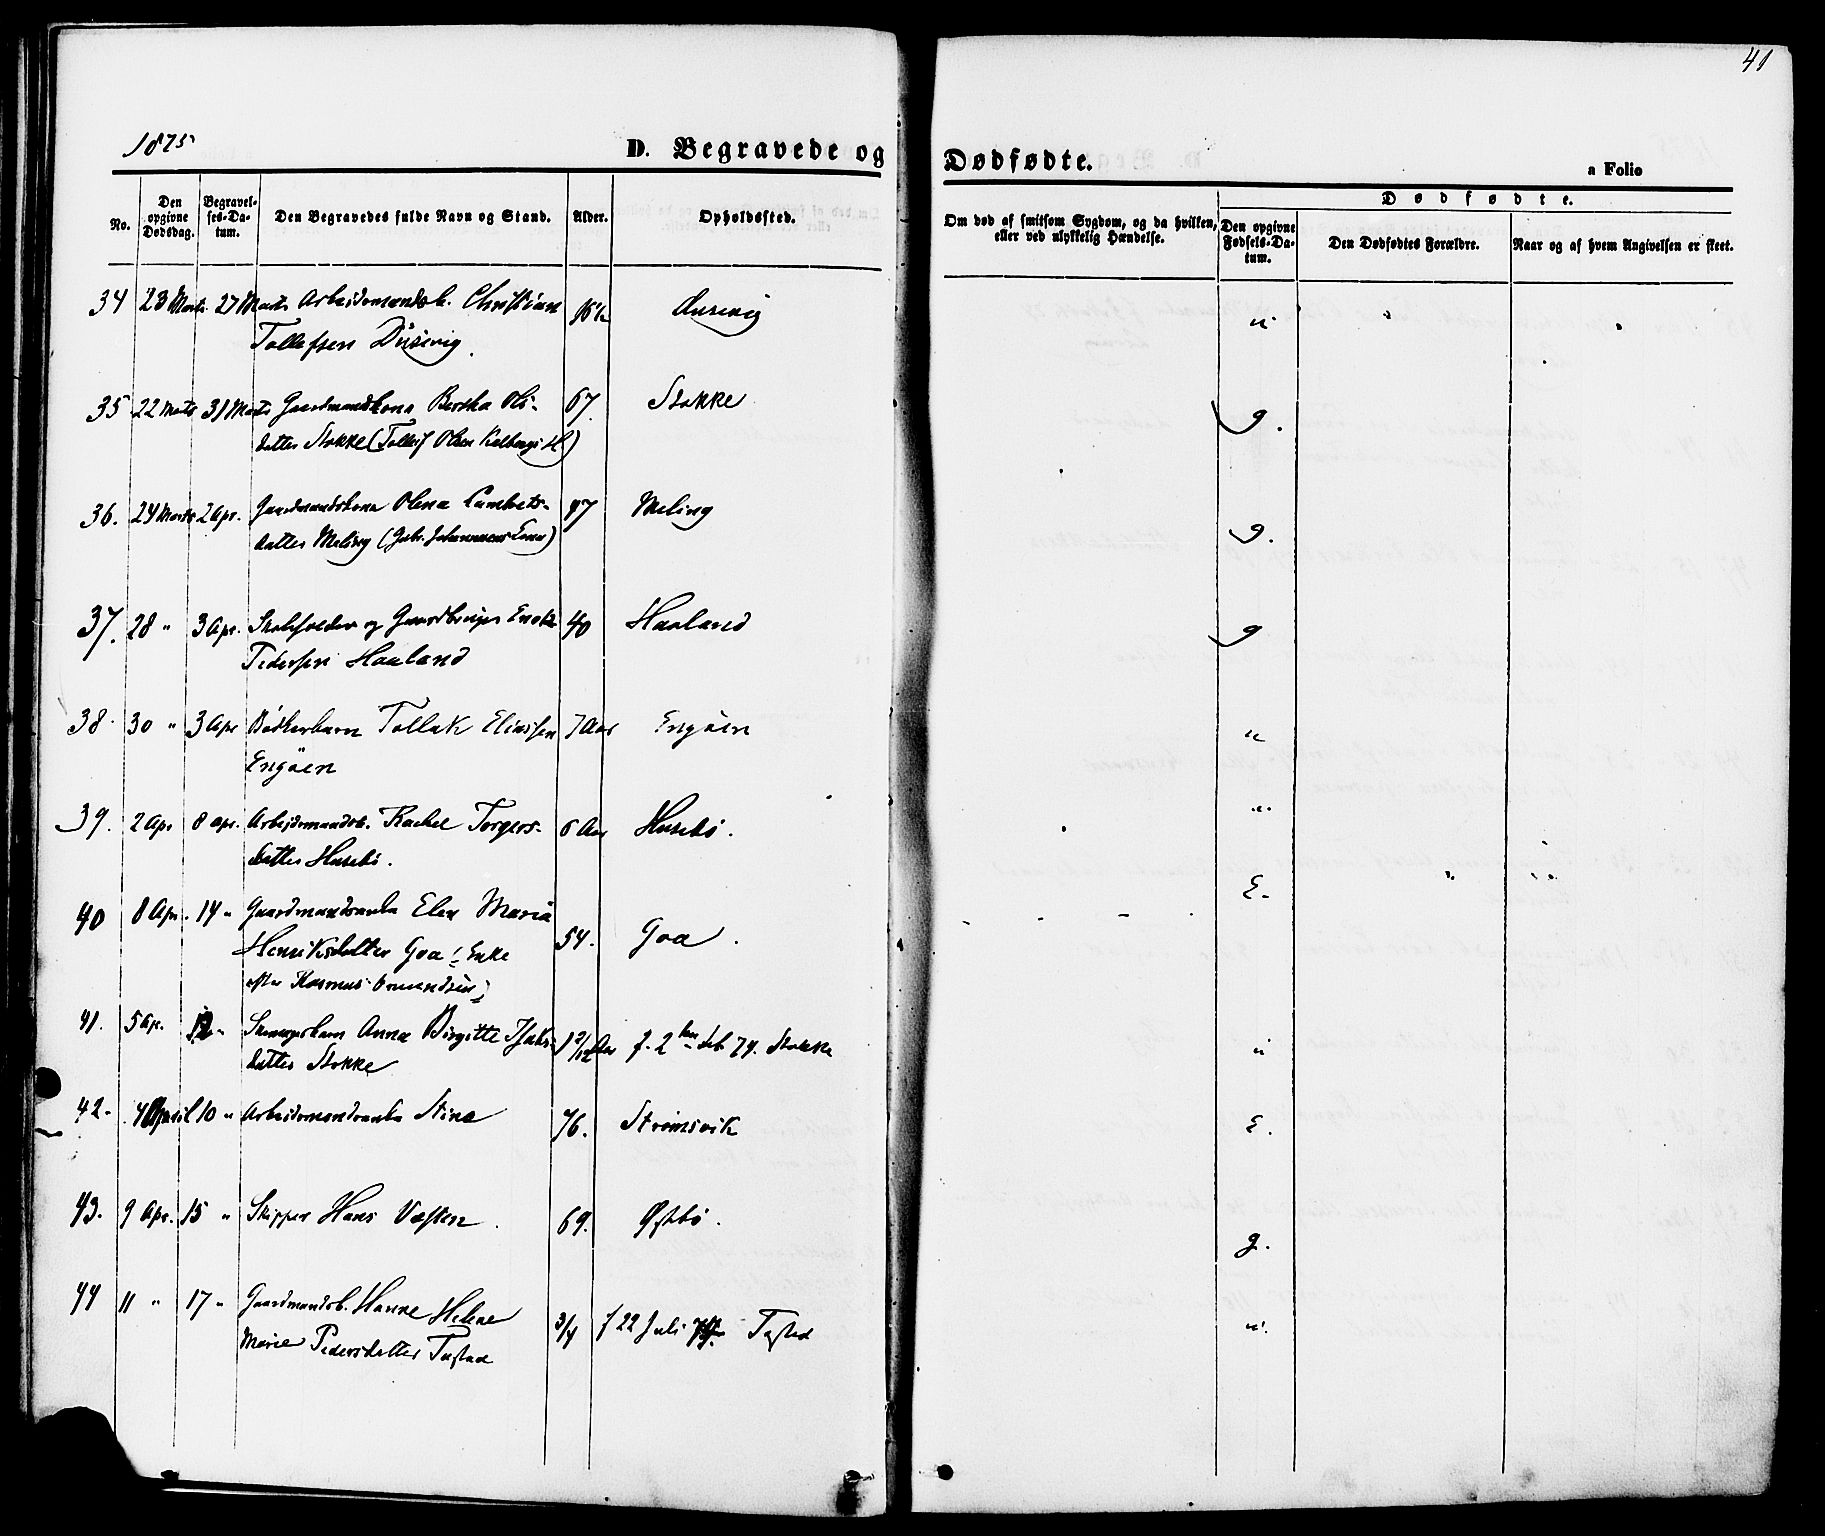 41
1875
D. Begravede og Dødfødte.
a Folio
No.
Den opgivne Dødsdag.
Begravelses-Datum.
Den Begravedes fulde Navn og Stand.
Alder.
Opholdssted.
Om død af smitsom Sygdom, og da hvilken, eller ved ulykkelig Hændelse.
Dødfødte.
Den opgivne Fødsels-Datum.
Den Dødfødtes Forældre.
Naar og af hvem Angivelsen er skeet.
34 23 Marts 27 Marts Arbeidsmandsb. Christian Dusevig u
Tollefsen Dusevig
35 22 Marts 31 Marts Gaardmandskone Bertha Ols- 67 Stokke g.
datter Stokke (Tollef Olsen
36. 24 Marts 2 Apr. Gaardmandskone Olena Lambets- 47 Meling g.
datter Meling
37. 28 " 3 Apr. Skoleholder og Gaardbruger Enok 40 Haaland g
Pedersen Haaland
38. 30 " 3 Apr Bödkerbarn Tollak Eliassen 7 Aar Engöen u
Engöen
39. 2 Apr 8 Apr. Arbeidsmandsb. Rachel Torgers- 6 Aar Husebö. u.
datter Husebö.
40 8 Apr. 14 " Gaardmandsenke Elen Maria 54. Goa. E.
Henriksdatter Goa (Enke
efter Rasmus Omundsen)
41. 5 Ap. 12 " Anna Birgitte Isaks- 1 2/12 Aar f. 2 den Feb 74. Stokke u
datter Stokke
42. 4 April 10 " Arbeidsmandsenke Stina 76. Strömsvik E.
43. 9 Apr. 15 " Skipper Hans Væsten 69. Østbö. g.
44 11 " 17 " Gaardmandsb. Hanne Helene 3/4 f 22 Juli Tasted u.
Marie Pedersdatter Tasted